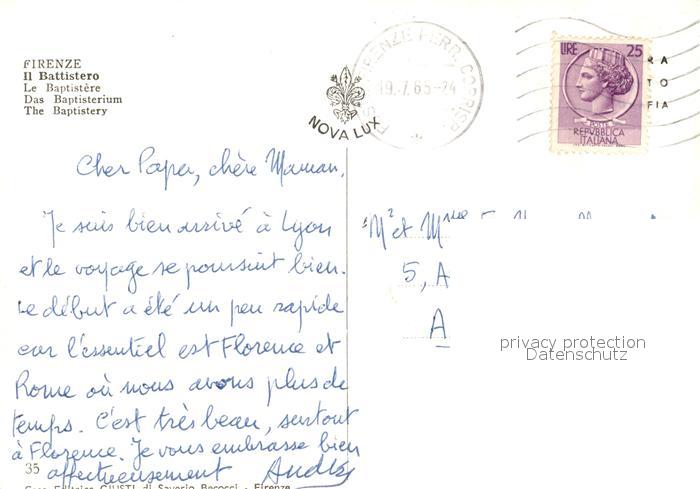 FIRENZE
Il Battistero
Le Baptistère
Das Baptisterium
The Baptistery
NOVA LUX
FIRENZE FERR. CORRISP.
19.7.65-24
LIRE 25
POSTE
REPVBBLICA
ITALIANA
RA
TO
FIA
Cher Papa, chère Maman,
Je suis bien arrivé à Lyon
et le voyage se poursuit bien.
Le début a été un peu rapide
car l'essentiel est Florence et
Rome où nous avons plus de
temps. C'est très beau, surtout
à Florence. Je vous embrasse bien
affectueusement André
Mr et Mme
5, A
A
privacy protection
Datenschutz
35
Casa Editrice GIUSTI di Saverio Becocci - Firenze